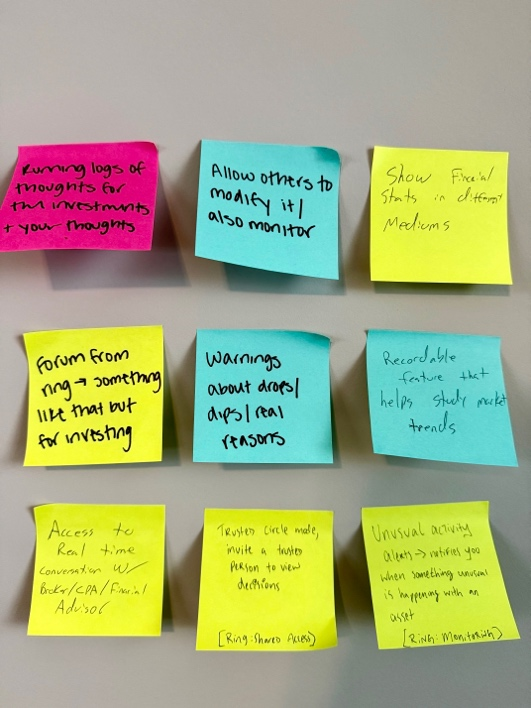 Running logs of
thoughts for
the investments
+ your thoughts
Allow others to
modify it/
also monitor
Show Finacial
Stats in different
Mediums
Forum from
ring → something
like that but
for investing
Warnings
about drops/
dips/real
reasons
Recordable
feature that
helps study market
trends
Access to
Real time
conversation w/
Broker/CPA/Finacial
Advisor
Trusted Circle mode,
invite a trusted
person to view
decisions
[Ring: Shared Access]
Unusual activity
alerts → notifies you
when something unusual
is happening with an
asset
[Ring: Monitoring]